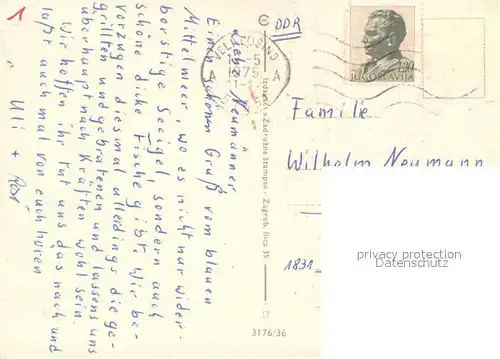 1
Liebe Neumänner
Einen schönen Gruß vom blauen
Mittelmeer, wo es nicht nur wider-
borstige Seeigel, sondern auch
schöne dicke Fische gibt. Wir be-
vorzugen diesmal allerdings die ge-
grillten und gebratenen und lassens uns
überhaupt nach Kräften wohl sein.
Wir hoffen ihr tut uns das nach und
laßt auch mal von euch hören
Uli +
DDR
VELI LOŠINJ
-5
1975-1
A A
1.20
JUGOSLAVIJA
Familie
Wilhelm Neumann
1831
Zadružna štampa - Zagreb, Ilica 35
3176/36
privacy protection
Datenschutz